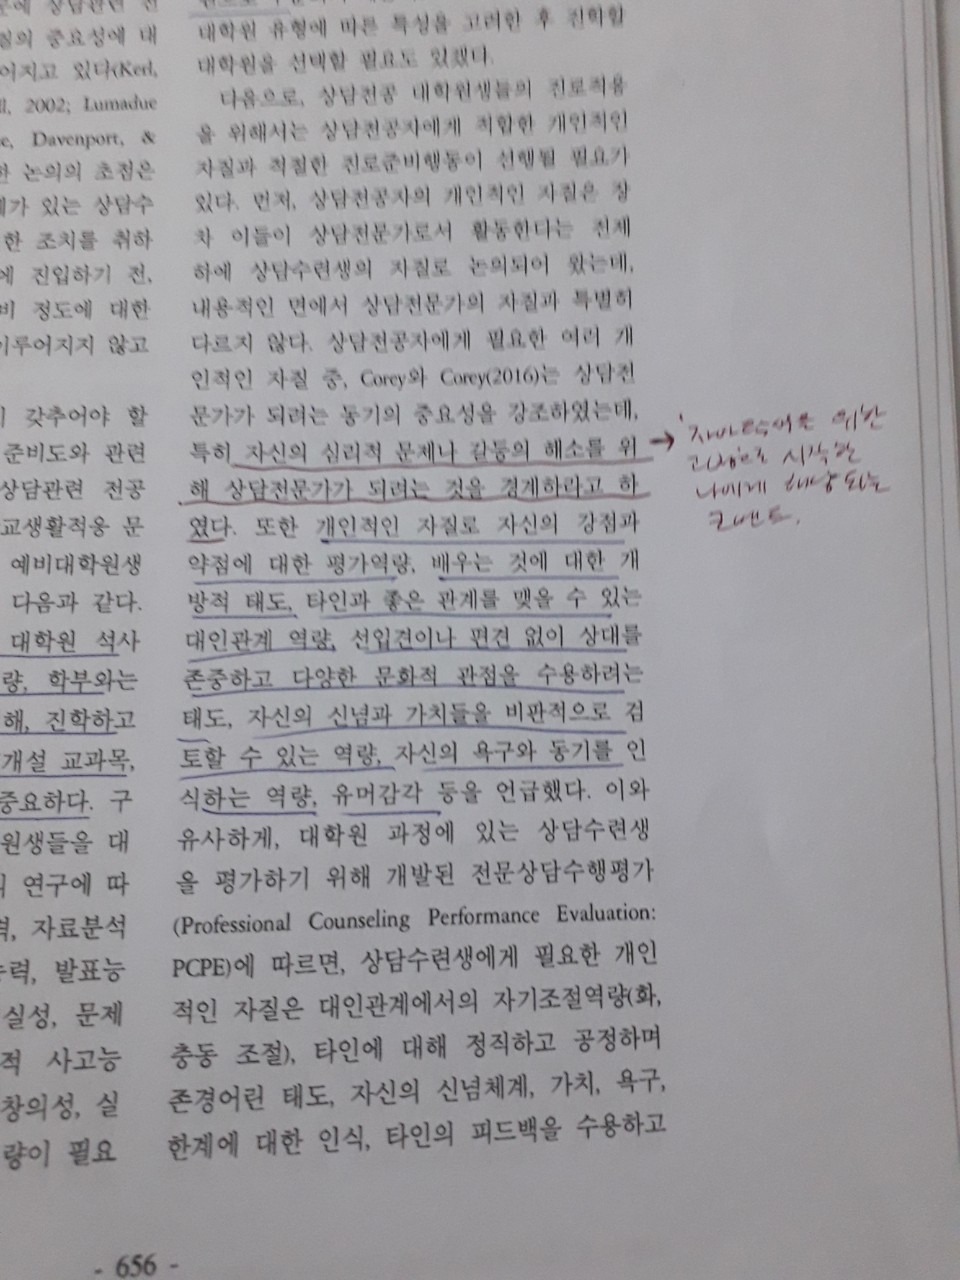 문에 상담관련 전
점의 중요성에 대
어지고 있다(Kerl,
ll, 2002; Lumadue
e, Davenport, &
한 논의의 초점은
제가 있는 상담수
한 조치를 취하
에 진입하기 전,
비 정도에 대한
이루어지지 않고
갖추어야 할
준비도와 관련
상담관련 전공
교생활적응 문
예비대학원생
다음과 같다.
대학원 석사
량, 학부와는
해, 진학하고
개설 교과목,
중요하다. 구
원생들을 대
연구에 따
력, 자료분석
능력, 발표능
실성, 문제
적 사고능
창의성, 실
량이 필요
대학원 유형에 따른 특성을 고려한 후 진학할
대학원을 선택할 필요도 있겠다.
다음으로, 상담전공 대학원생들의 진로적응
을 위해서는 상담전공자에게 적합한 개인적인
자질과 적절한 진로준비행동이 선행될 필요가
있다. 먼저, 상담전공자의 개인적인 자질은 장
차 이들이 상담전문가로서 활동한다는 전제
하에 상담수련생의 자질로 논의되어 왔는데,
내용적인 면에서 상담전문가의 자질과 특별히
다르지 않다. 상담전공자에게 필요한 여러 개
인적인 자질 중, Corey와 Corey(2016)는 상담전
문가가 되려는 동기의 중요성을 강조하였는데,
특히 자신의 심리적 문제나 갈등의 해소를 위
해 상담전문가가 되려는 것을 경계하라고 하
였다. 또한 개인적인 자질로 자신의 강점과
약점에 대한 평가역량, 배우는 것에 대한 개
방적 태도, 타인과 좋은 관계를 맺을 수 있는
대인관계 역량, 선입견이나 편견 없이 상대를
존중하고 다양한 문화적 관점을 수용하려는
태도, 자신의 신념과 가치들을 비판적으로 검
토할 수 있는 역량, 자신의 욕구와 동기를 인
식하는 역량, 유머감각 등을 언급했다. 이와
유사하게, 대학원 과정에 있는 상담수련생
을 평가하기 위해 개발된 전문상담수행평가
(Professional Counseling Performance Evaluation:
PCPE)에 따르면, 상담수련생에게 필요한 개인
적인 자질은 대인관계에서의 자기조절역량(화,
충동 조절), 타인에 대해 정직하고 공정하며
존경어린 태도, 자신의 신념체계, 가치, 욕구,
한계에 대한 인식, 타인의 피드백을 수용하고
위한
시작한
나에게 해당되는
코멘트.
- 656 -